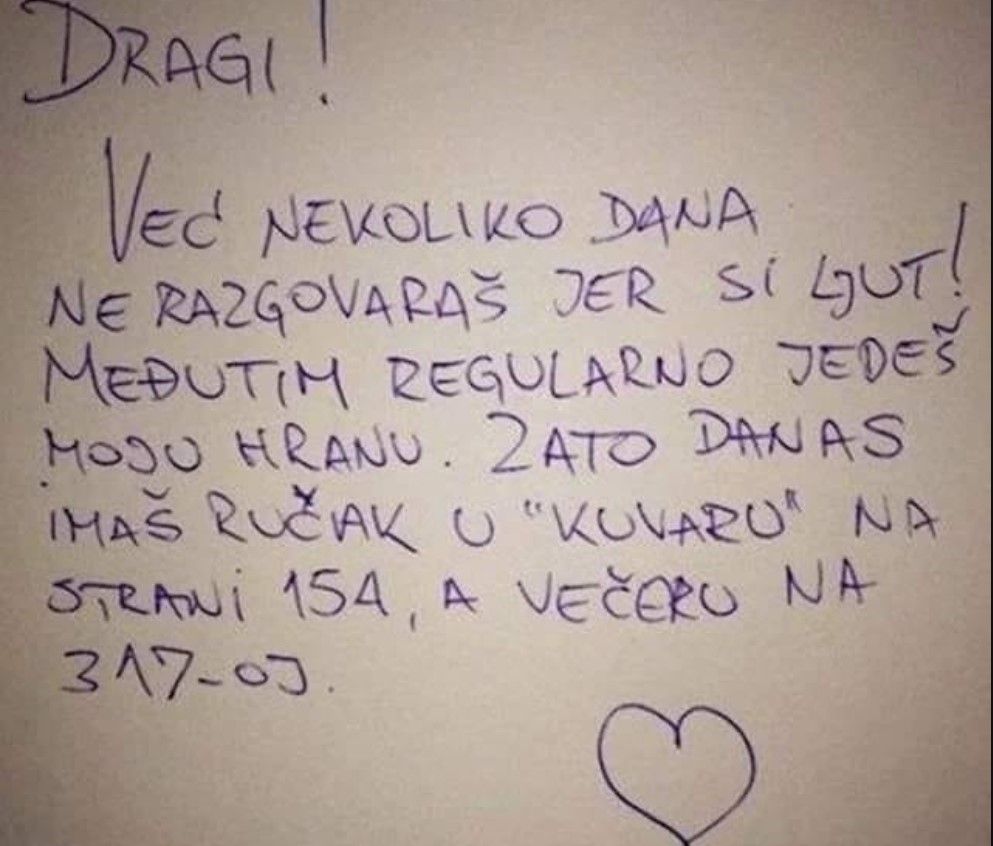 DRAGI!
VEĆ NEKOLIKO DANA
NE RAZGOVARAŠ JER SI LJUT!
MEĐUTIM REGULARNO JEDEŠ
MOJU HRANU. ZATO DANAS
IMAŠ RUČAK U "KUVARU" NA
STRANI 154, A VEČERU NA
317-OJ.